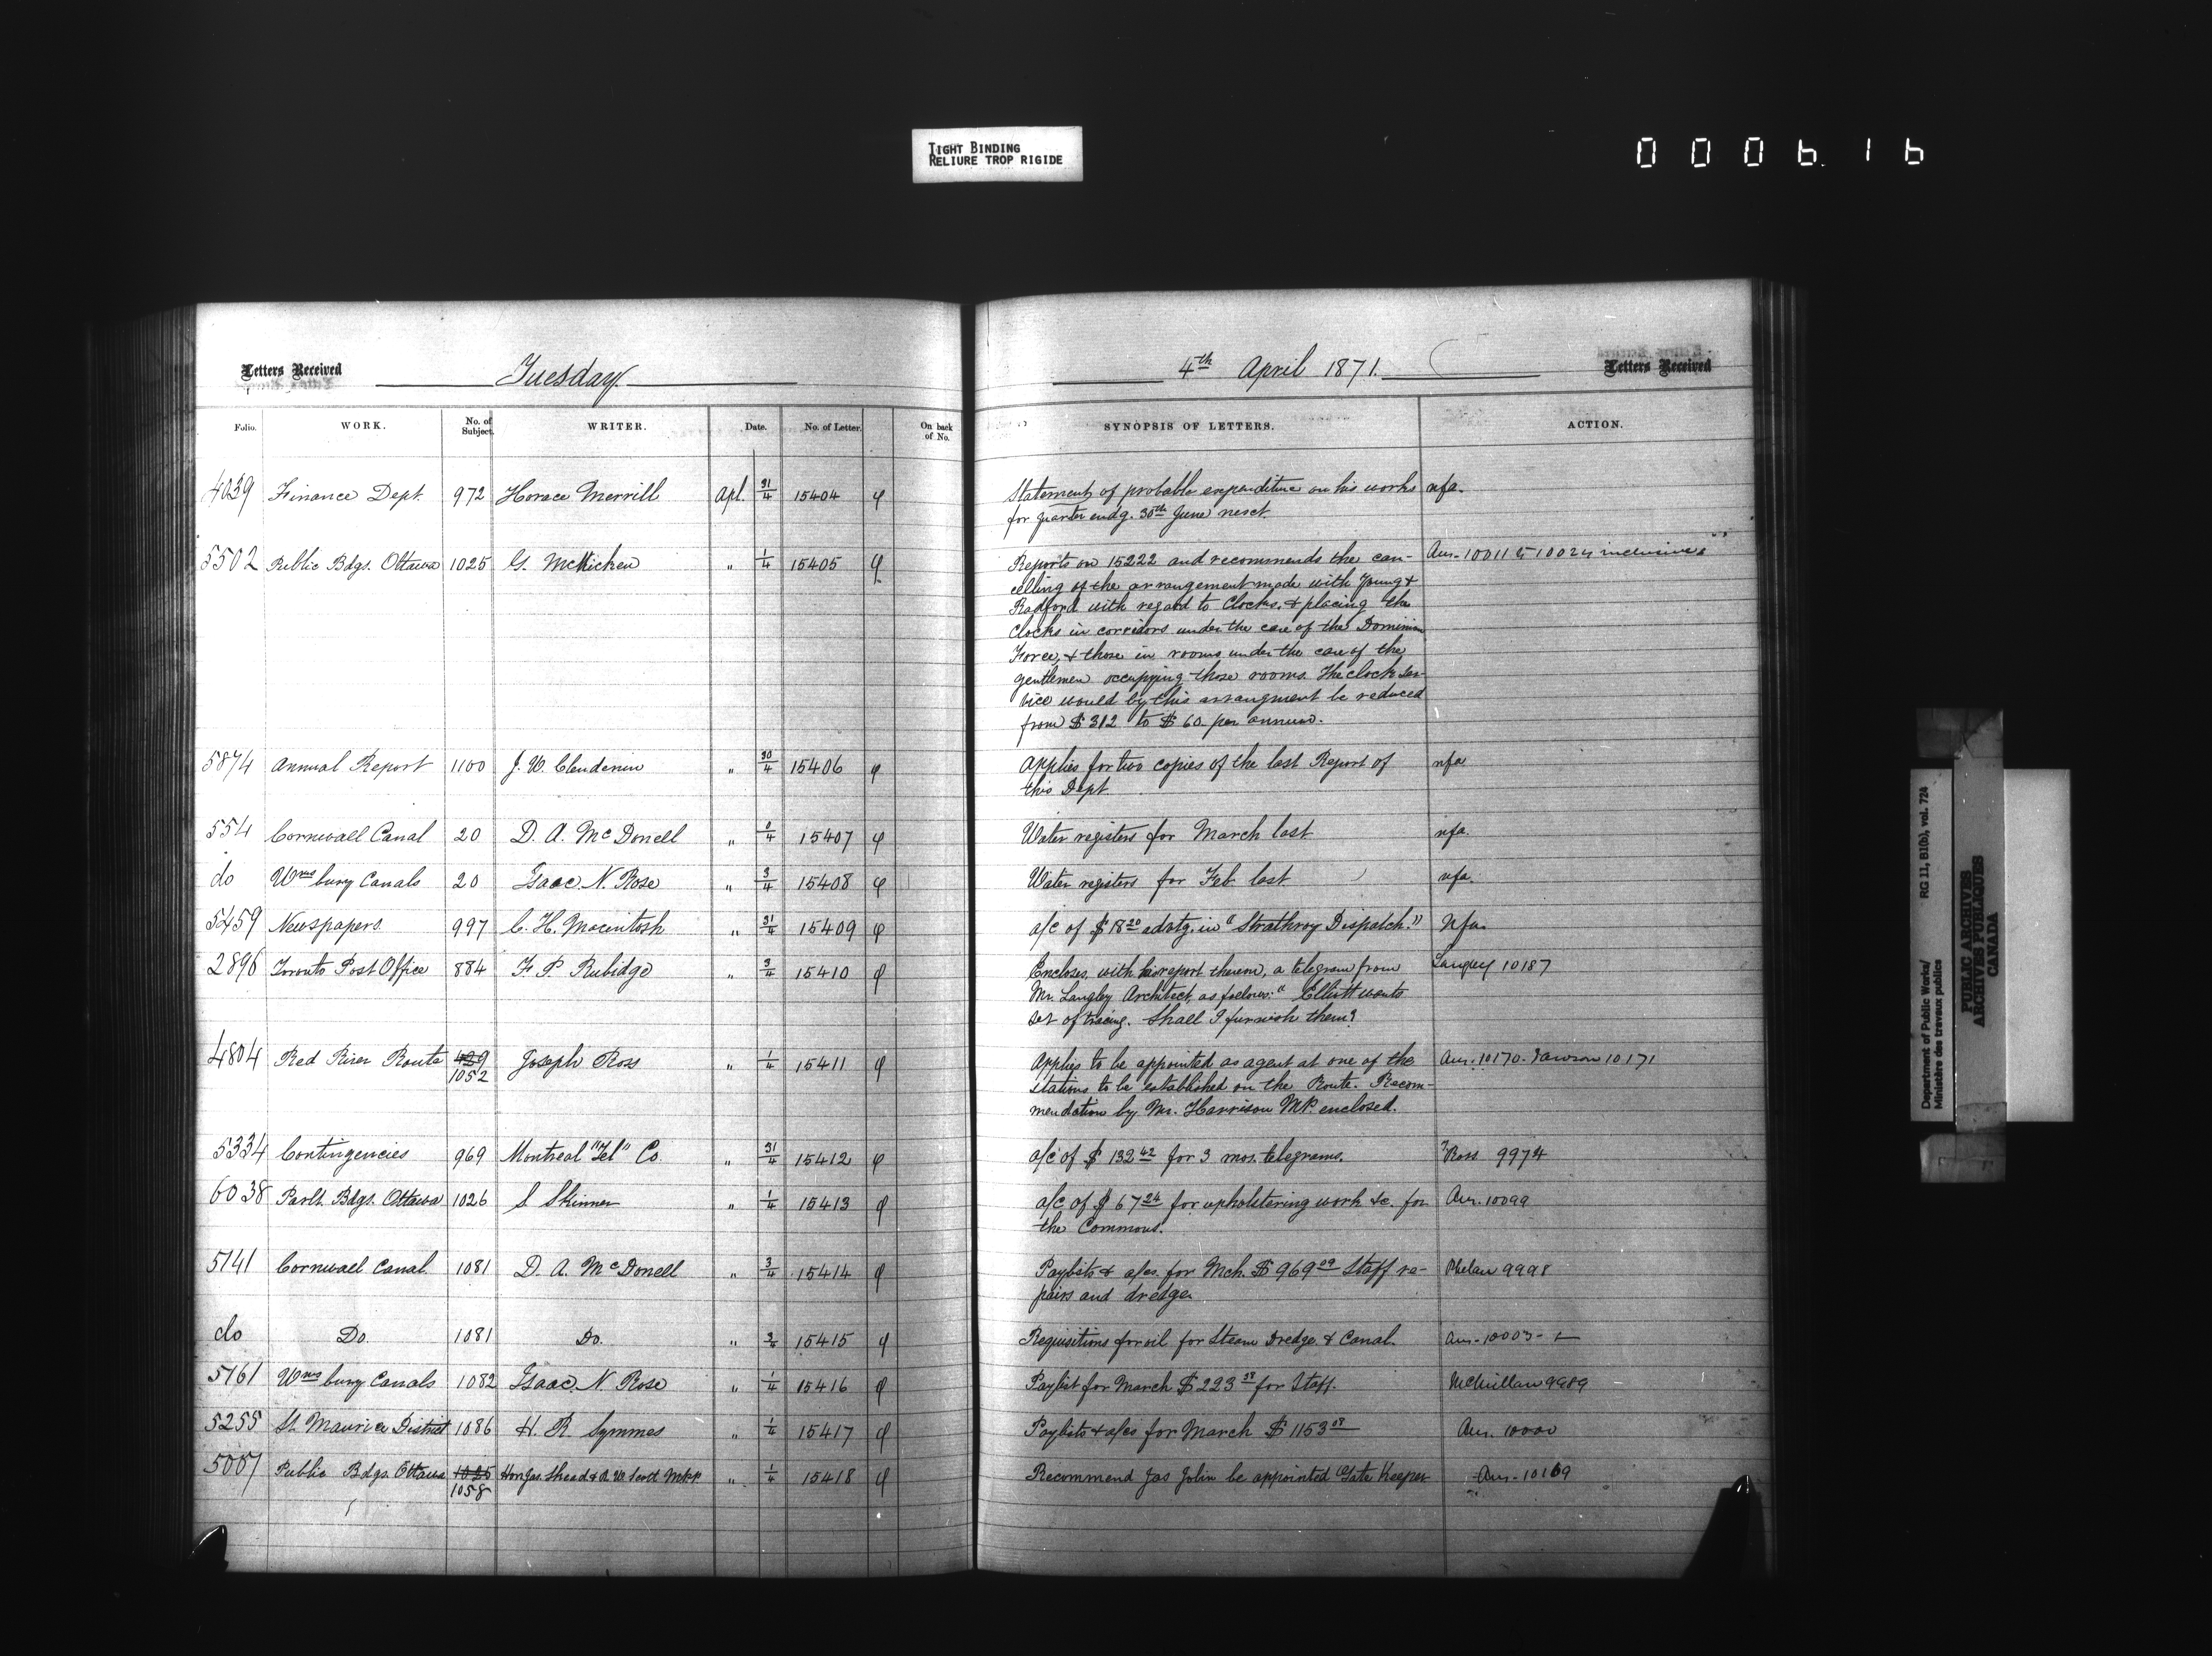 TIGHT BINDING
RELIURE TROP RIGIDE
0006.16
Letters Received Tuesday 4th April 1871. Letters Received
Folio. WORK. No. of Subject. WRITER. Date. No. of Letter. On back of No. SYNOPSIS OF LETTERS. ACTION.
4039 Finance Dept. 972 Horace Merrill Apl. 31/4 15404 φ Statement of probable expenditure on his works nfa.
for quarter endg. 30th June next.
5502 Public Bdgs. Ottawa 1025 G. McMicken " 1/4 15405 φ Reports on 15222 and recommends the can- Aur. 10011 to 10024 inclusive
celling of the arrangement made with Young &
Radford with regard to Clocks, & placing the
Clocks in corridors under the care of the Dominion
Force, & those in rooms under the care of the
gentlemen occupying those rooms. The clock ser-
vice would by this arrangment be reduced
from $312 to $60 per annum.
5874 Annual Report 1100 J. W. Clendenin " 30/4 15406 φ Applies for two copies of the last Report of nfa
this Dept
554 Cornwall Canal 20 D. A. McDonell " /4 15407 φ Water registers for March last nfa.
do Wmsburg Canals 20 Isaac N. Rose " 3/4 15408 φ Water registers for Feb last nfa.
5459 Newspapers. 997 C. H. Macintosh " 31/4 15409 φ a/c of $18 20 advtg. in "Strathroy Dispatch." Nfa.
2896 Toronto Post Office 884 F. P. Rubidge " 3/4 15410 φ Encloses, with his report thereon, a telegram from Langley 10187
Mr. Langley Architect, as follows: "Elliott wants
set of tracing. Shall I furnish them?
4804 Red River Route 429 1052 Joseph Ross " 1/4 15411 φ Applies to be appointed as agent at one of the Aur. 10170. Dawson 10171
stations to be established on the Route. Recom-
mendation by Mr. Harrison MP. enclosed.
5334 Contingencies 969 Montreal "Tel" Co. " 31/4 15412 φ a/c of $132 42 for 3 mos. telegrams. Ross 9974
6038 Parlt. Bdgs. Ottawa 1026 S Skinner " 1/4 15413 φ a/c of $67 24 for upholstering work &c. for Aur. 10099
the Commons.
5141 Cornwall Canal. 1081 D. A. McDonell " 3/4 15414 φ Paylists & a/cs. for Mch. $969 09 Staff re- Phelan 9998
pairs and dredge
do Do. 1081 Do. " 3/4 15415 φ Requisitions for oil for Steam Dredge & Canal. Aur. 10003-
5161 Wmsburg Canals 1082 Isaac N. Rose " 1/4 15416 φ Paylist for March $223 38 for Staff. McMillan 9989
5255 St. Maurice District 1086 H. R. Symmes " 1/4 15417 φ Paylists & a/cs for March $1153 08 Aur. 10000
5007 Public Bdgs. Ottawa 1025 1058 Hon Jas. Skead & R. W. Scott MPP " 1/4 15418 φ Recommend Jas Jolin be appointed Gate Keeper Aur. 10169
Department of Public Works/ RG 11, B1(b), vol. 724
Ministère des travaux publics
PUBLIC ARCHIVES
ARCHIVES PUBLIQUES
CANADA